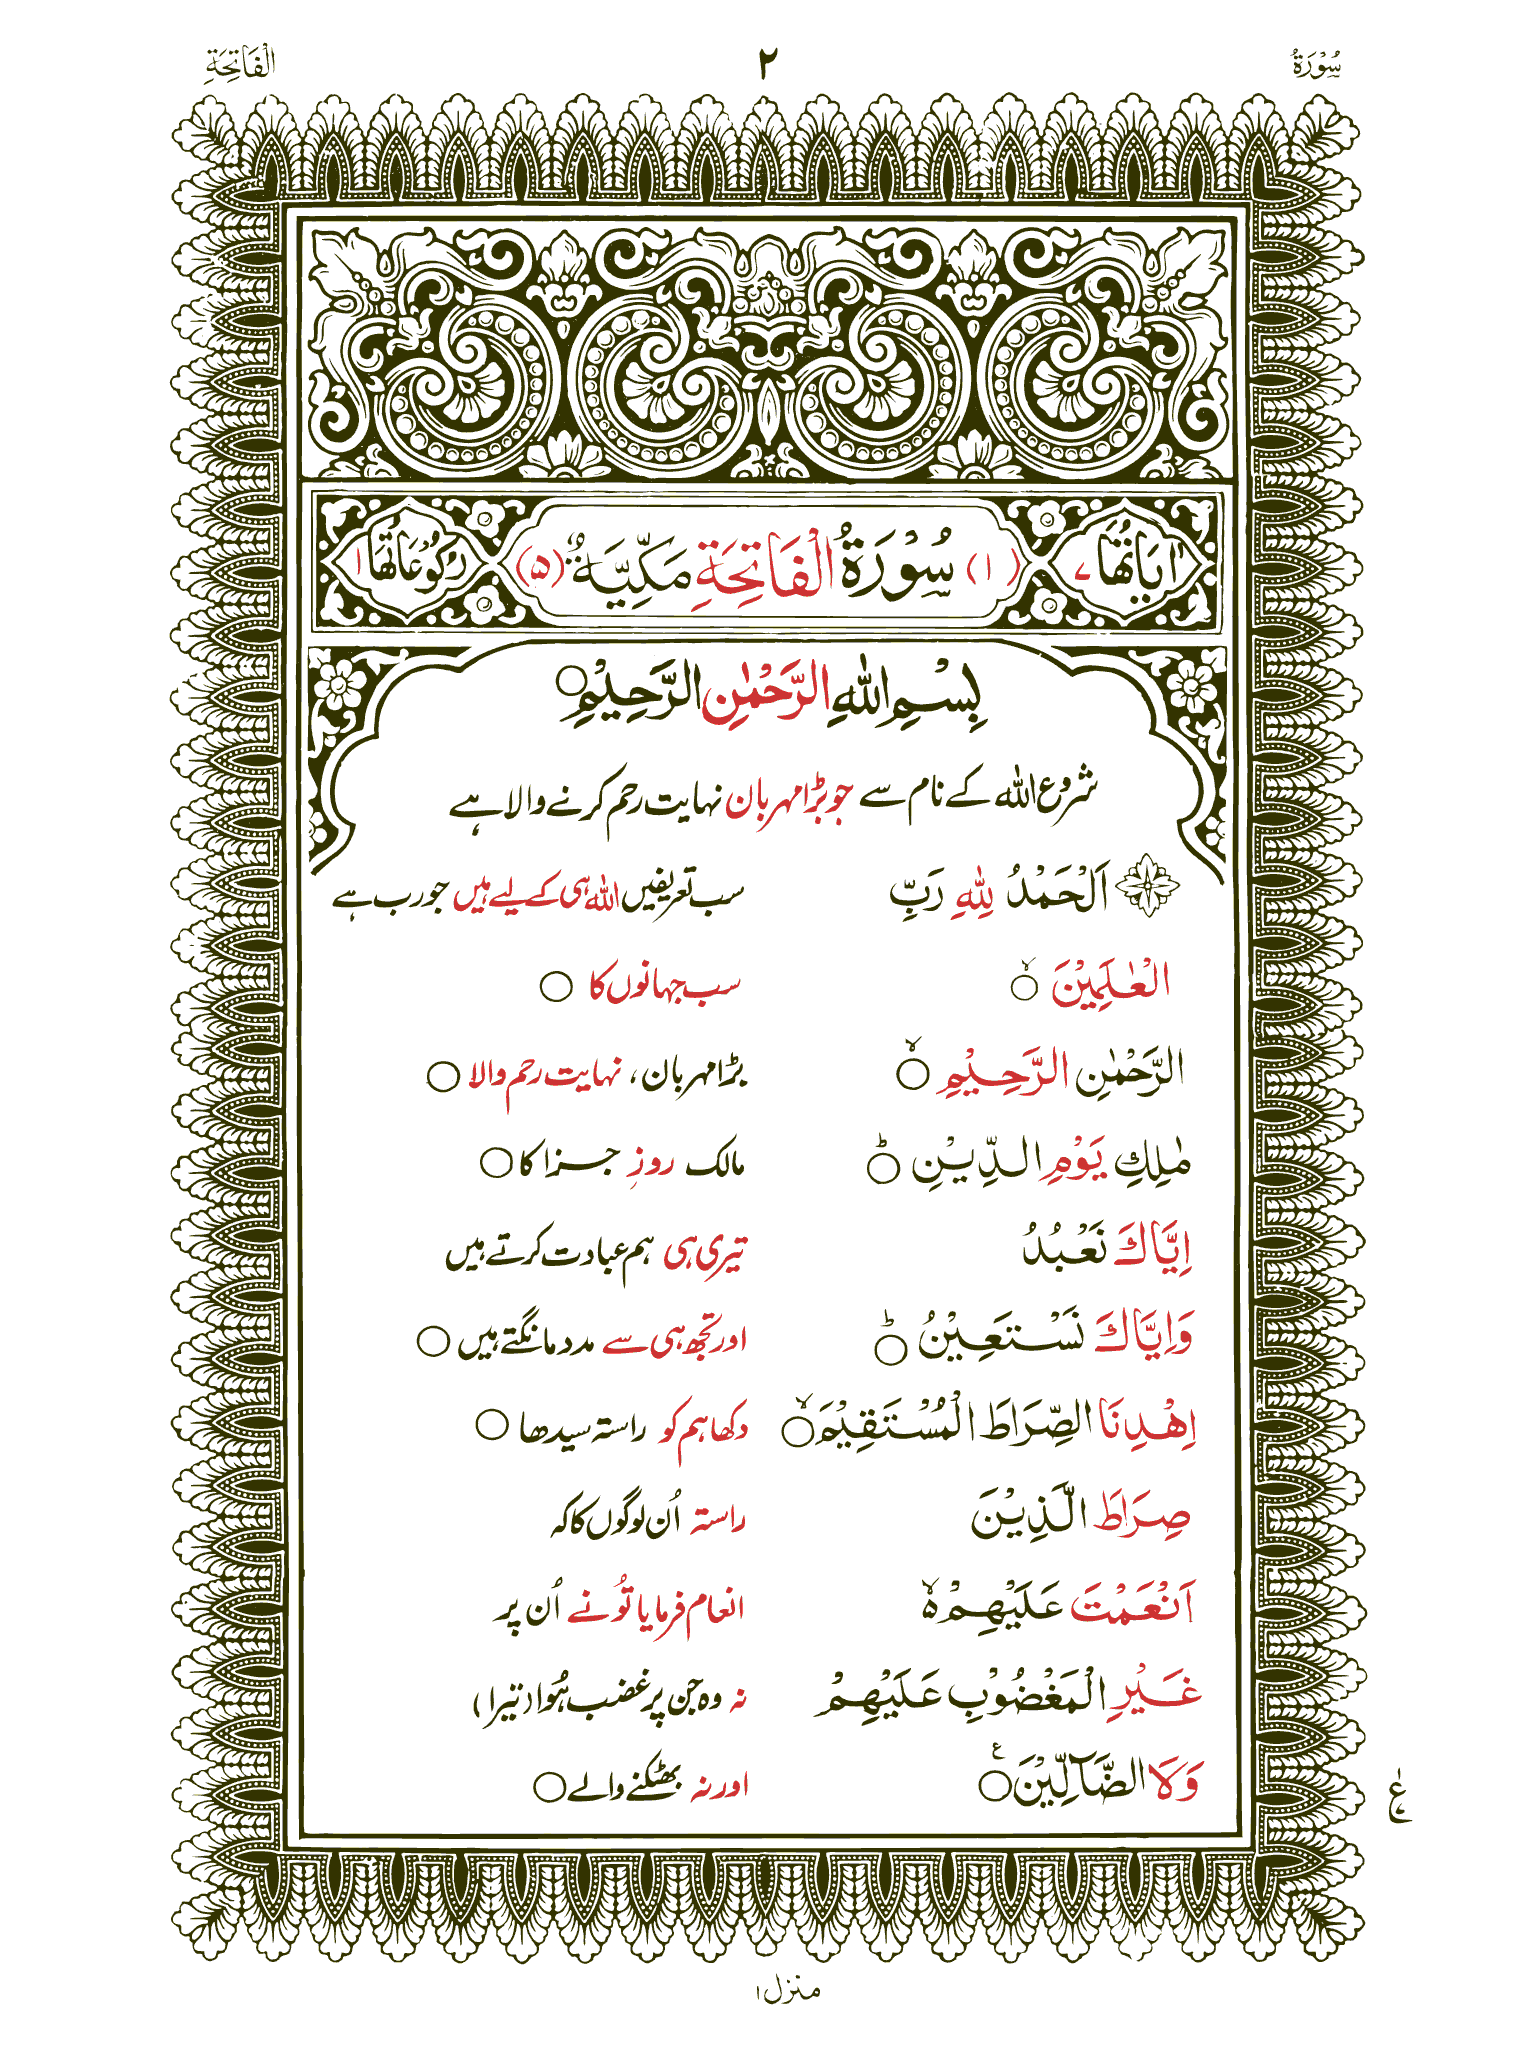 سُوْرَةُ ٢ الْفَاتِحَةِ
اٰيَاتُهَا ٧ (١) سُوْرَةُ الْفَاتِحَةِ مَكِّيَّةٌ (٥) رُكُوْعَاتُهَا ١
بِسْمِ اللّٰهِ الرَّحْمٰنِ الرَّحِيْمِ ○
شروع اللہ کے نام سے جو بڑا مہربان نہایت رحم کرنے والا ہے
اَلْحَمْدُ لِلّٰهِ رَبِّ سب تعریفیں اللہ ہی کے لیے ہیں جو رب ہے
الْعٰلَمِيْنَ ○ۙ سب جہانوں کا ○
الرَّحْمٰنِ الرَّحِيْمِ ○ۙ بڑا مہربان، نہایت رحم والا ○
مٰلِكِ يَوْمِ الدِّيْنِ ○ؕ مالک روزِ جزا کا ○
اِيَّاكَ نَعْبُدُ تیری ہی ہم عبادت کرتے ہیں
وَاِيَّاكَ نَسْتَعِيْنُ ○ؕ اور تجھ ہی سے مدد مانگتے ہیں ○
اِهْدِنَا الصِّرَاطَ الْمُسْتَقِيْمَ ○ۙ دکھا ہم کو راستہ سیدھا ○
صِرَاطَ الَّذِيْنَ راستہ اُن لوگوں کا کہ
اَنْعَمْتَ عَلَيْهِمْ ۙ۬ انعام فرمایا تُو نے اُن پر
غَيْرِ الْمَغْضُوْبِ عَلَيْهِمْ نہ وہ جن پر غضب ہُوا (تیرا)
وَلَا الضَّآلِّيْنَ ○ع اور نہ بھٹکنے والے ○
ع١
منزل ١